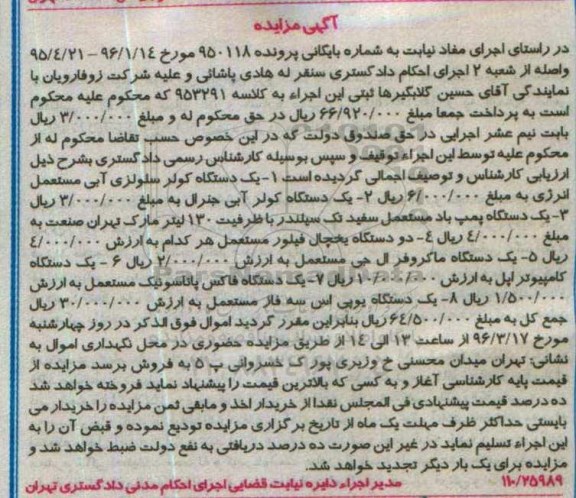 آگهی مزایده
در راستای اجرای مفاد نیابت به شماره بایگانی پرونده ۹۵۰۱۱۸ مورخ ۹۶/۱/۱۴ – ۹۵/۴/۲۱
واصله از شعبه ۲ اجرای احکام دادگستری سنقر له هادی پاشائی و علیه شرکت زوفارویان با
نمایندگی آقای حسین گلابگیرها ثبتی این اجراء به کلاسه ۹۵۳۲۹۱ که محکوم علیه محکوم
است به پرداخت جمعا مبلغ ۶۶/۹۲۰/۰۰۰ ریال در حق محکوم له و مبلغ ۳/۰۰۰/۰۰۰ ریال
بابت نیم عشر اجرایی در حق صندوق دولت که در این خصوص حسب تقاضا محکوم له از
محکوم علیه توسط این اجراء توقیف و سپس بوسیله کارشناس رسمی دادگستری بشرح ذیل
ارزیابی کارشناس و توصیف اجمالی گردیده است ۱- یک دستگاه کولر سلولزی آبی مستعمل
انرژی به مبلغ ۶/۰۰۰/۰۰۰ ریال ۲- یک دستگاه کولر آبی جنرال به مبلغ ۳/۰۰۰/۰۰۰ ریال
۳- یک دستگاه پمپ باد مستعمل سفید تک سیلندر با ظرفیت ۱۳۰ لیتر مارک تهران صنعت به
مبلغ ۴/۰۰۰/۰۰۰ ریال ۴- دو دستگاه یخچال فیلور مستعمل هر کدام به ارزش ۴/۰۰۰/۰۰۰
ریال ۵- یک دستگاه ماکروفر ال جی مستعمل به ارزش ۲/۰۰۰/۰۰۰ ریال ۶ - یک دستگاه
کامپیوتر اپل به ارزش ۱۰/۰۰۰/۰۰۰ ریال ۷- یک دستگاه فاکس پاناسونیک مستعمل به ارزش
۱/۵۰۰/۰۰۰ ریال ۸- یک دستگاه یوپی اس سه فاز مستعمل به ارزش ۳۰/۰۰۰/۰۰۰ ریال
جمع کل به مبلغ ۶۴/۵۰۰/۰۰۰ ریال بنابراین مقرر گردید اموال فوق الذکر در روز چهارشنبه
مورخ ۹۶/۳/۱۷ از ساعت ۱۳ الی ۱۴ از طریق مزایده حضوری در محل نگهداری اموال به
نشانی: تهران میدان محسنی خ وزیری پور ک خسروانی پ ۵ به فروش برسد مزایده از
قیمت پایه کارشناسی آغاز و به کسی که بالاترین قیمت را پیشنهاد نماید فروخته خواهد شد
ده درصد قیمت پیشنهادی فی المجلس نقدا از خریدار اخذ و مابقی ثمن مزایده را خریدار می
بایستی حداکثر ظرف مهلت یک ماه از تاریخ برگزاری مزایده تودیع نموده و قبض آن را به
این اجراء تسلیم نماید در غیر این صورت ده درصد دریافتی به نفع دولت ضبط خواهد شد و
مزایده برای یک بار دیگر تجدید خواهد شد.
۱۱۰/۲۵۹۸۹ مدیر اجراء دایره نیابت قضایی اجرای احکام مدنی دادگستری تهران